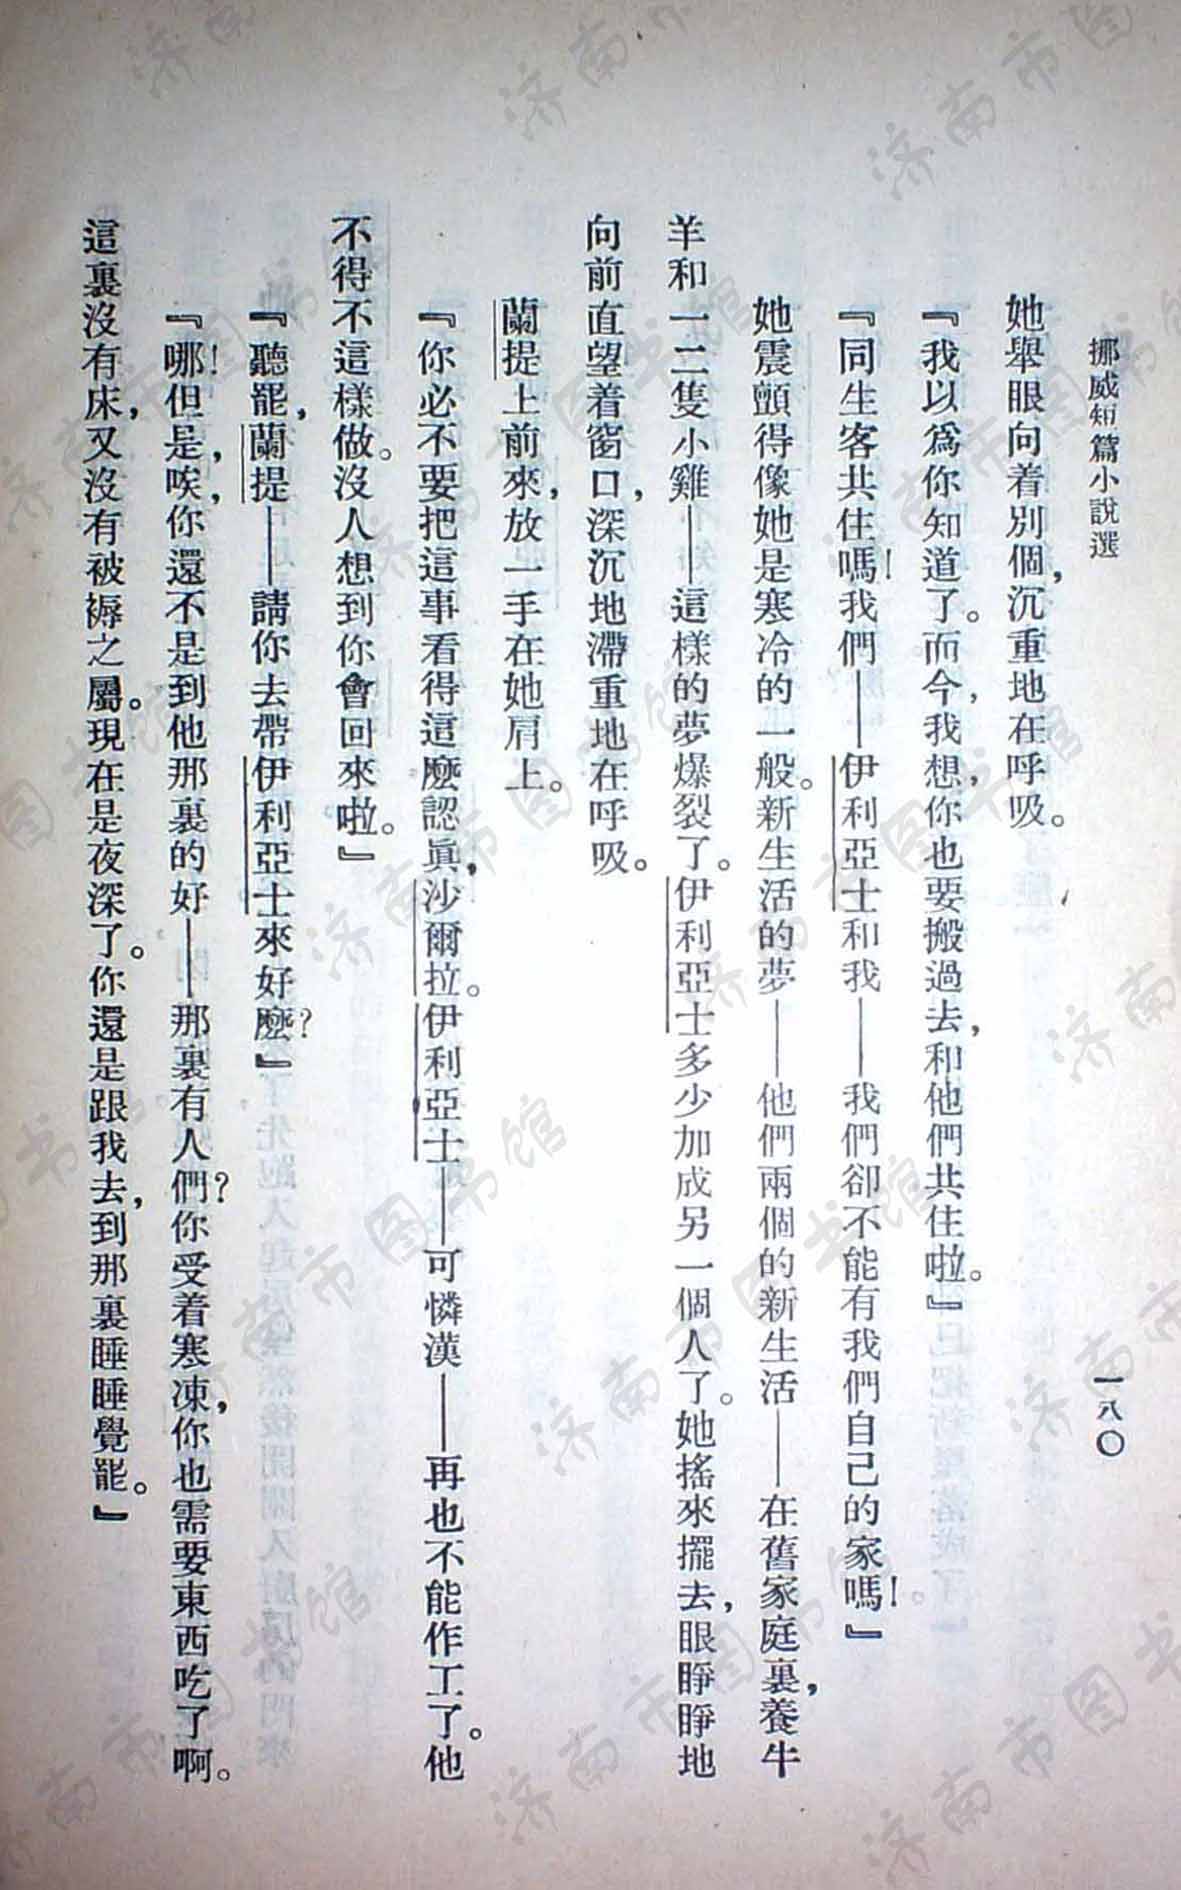 挪威短篇小說選
一八〇
她舉眼向着別個，沉重地在呼吸。
『我以爲你知道了。而今，我想，你也要搬過去，和他們共住啦。』
『同生客共住嗎！我們——伊利亞士和我——我們卻不能有我們自己的家嗎！』
她震顫得像她是寒冷的一般。新生活的夢——他們兩個的新生活——在舊家庭裏，養牛
羊和一二隻小雞——這樣的夢爆裂了。伊利亞士多少加成另一個人了。她搖來擺去，眼睜睜地
向前直望着窗口，深沉地滯重地在呼吸。
蘭提上前來，放一手在她肩上。
『你必不要把這事看得這麼認眞，沙爾拉。伊利亞士——可憐漢——再也不能作工了。他
不得不這樣做。沒人想到你會回來啦。』
『聽罷，蘭提——請你去帶伊利亞士來好麼？』
『哪！但是，唉，你還不是到他那裏的好——那裏有人們？你受着寒凍，你也需要東西吃了啊。
這裏沒有床，又沒有被褥之屬。現在是夜深了。你還是跟我去，到那裏睡睡覺罷。』